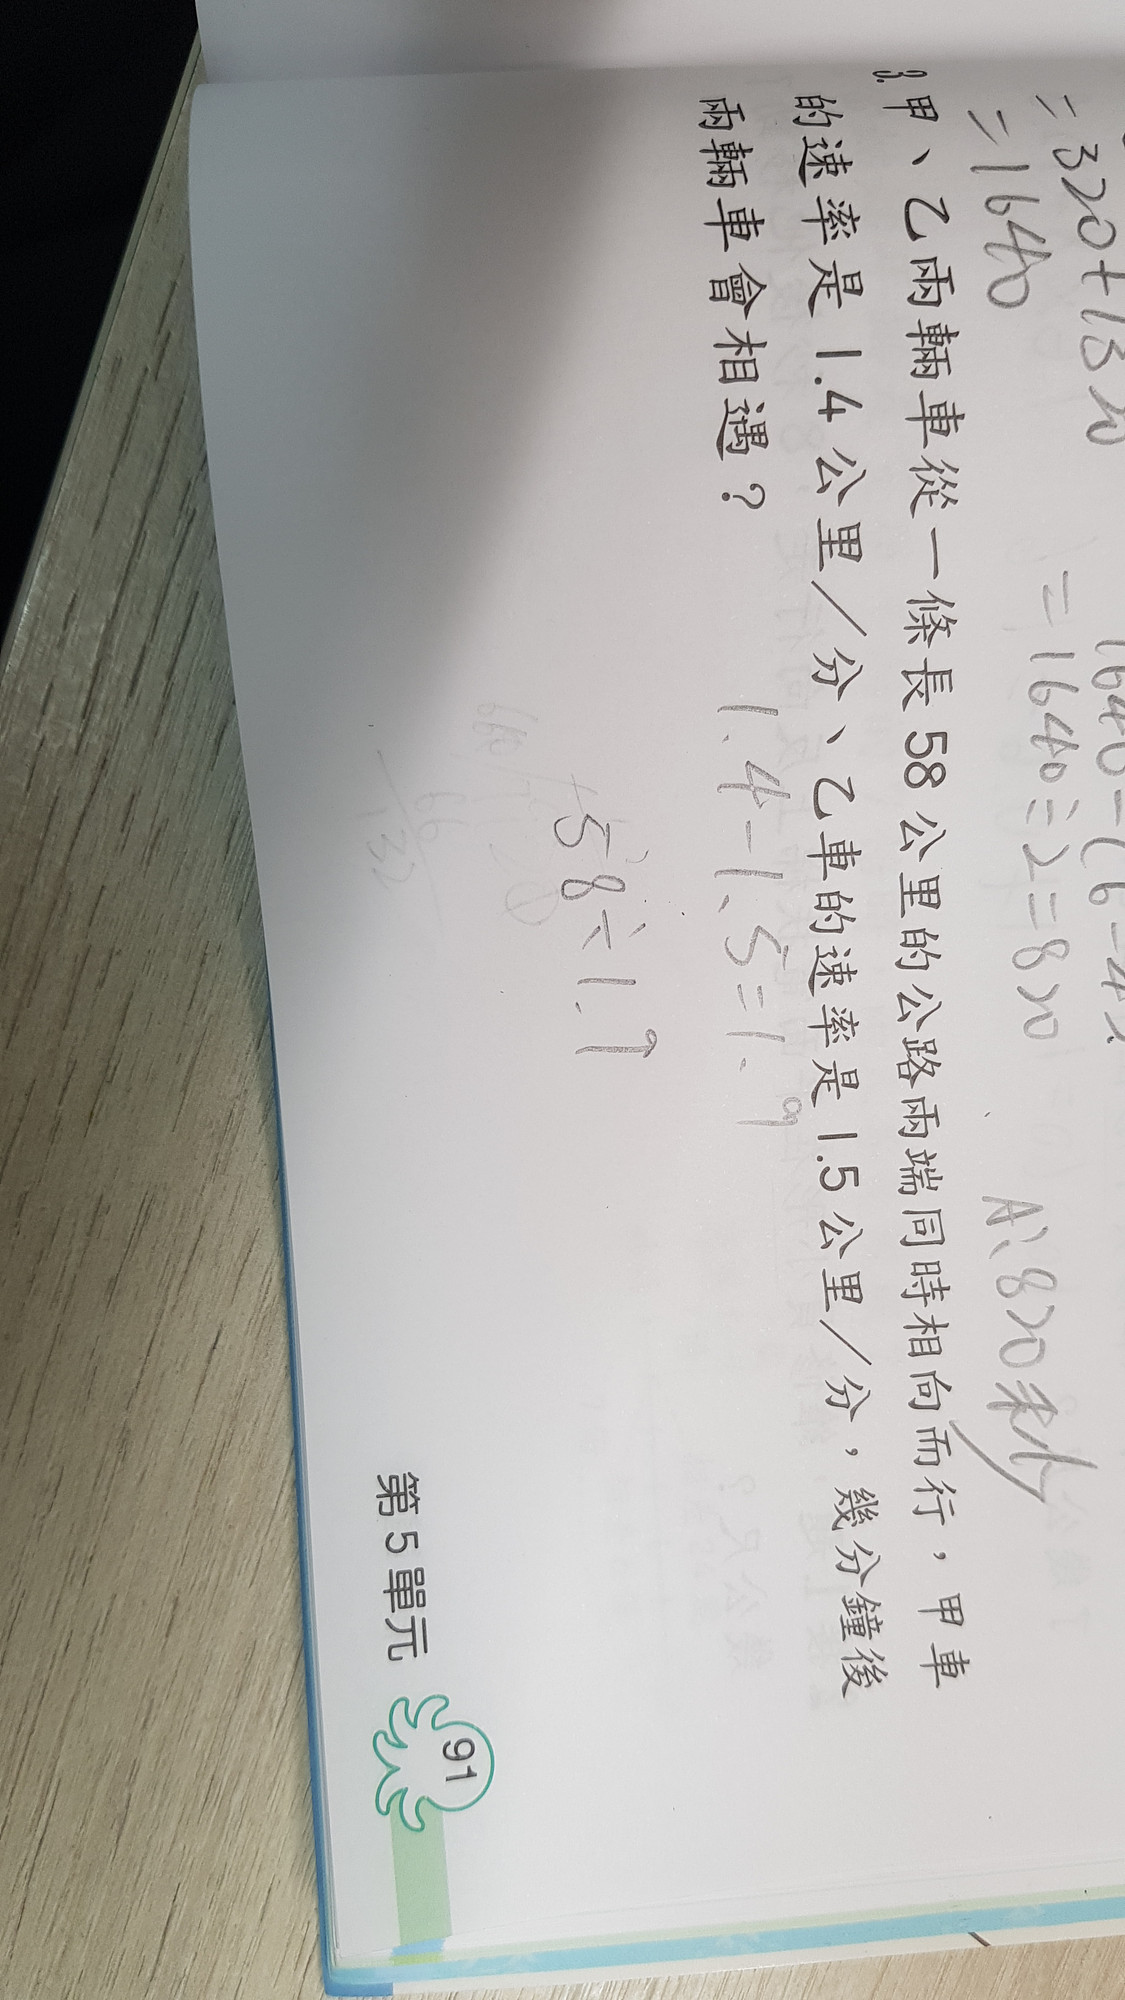 = 320 + 1320
= 1640
= 1640÷2=820
A:820秒
3. 甲、乙兩輛車從一條長 58 公里的公路兩端同時相向而行，甲車
的速率是 1.4 公里／分、乙車的速率是 1.5 公里／分，幾分鐘後
兩輛車會相遇？
1.4-1.5=1.9
58÷1.9
66
132
第 5 單元
91